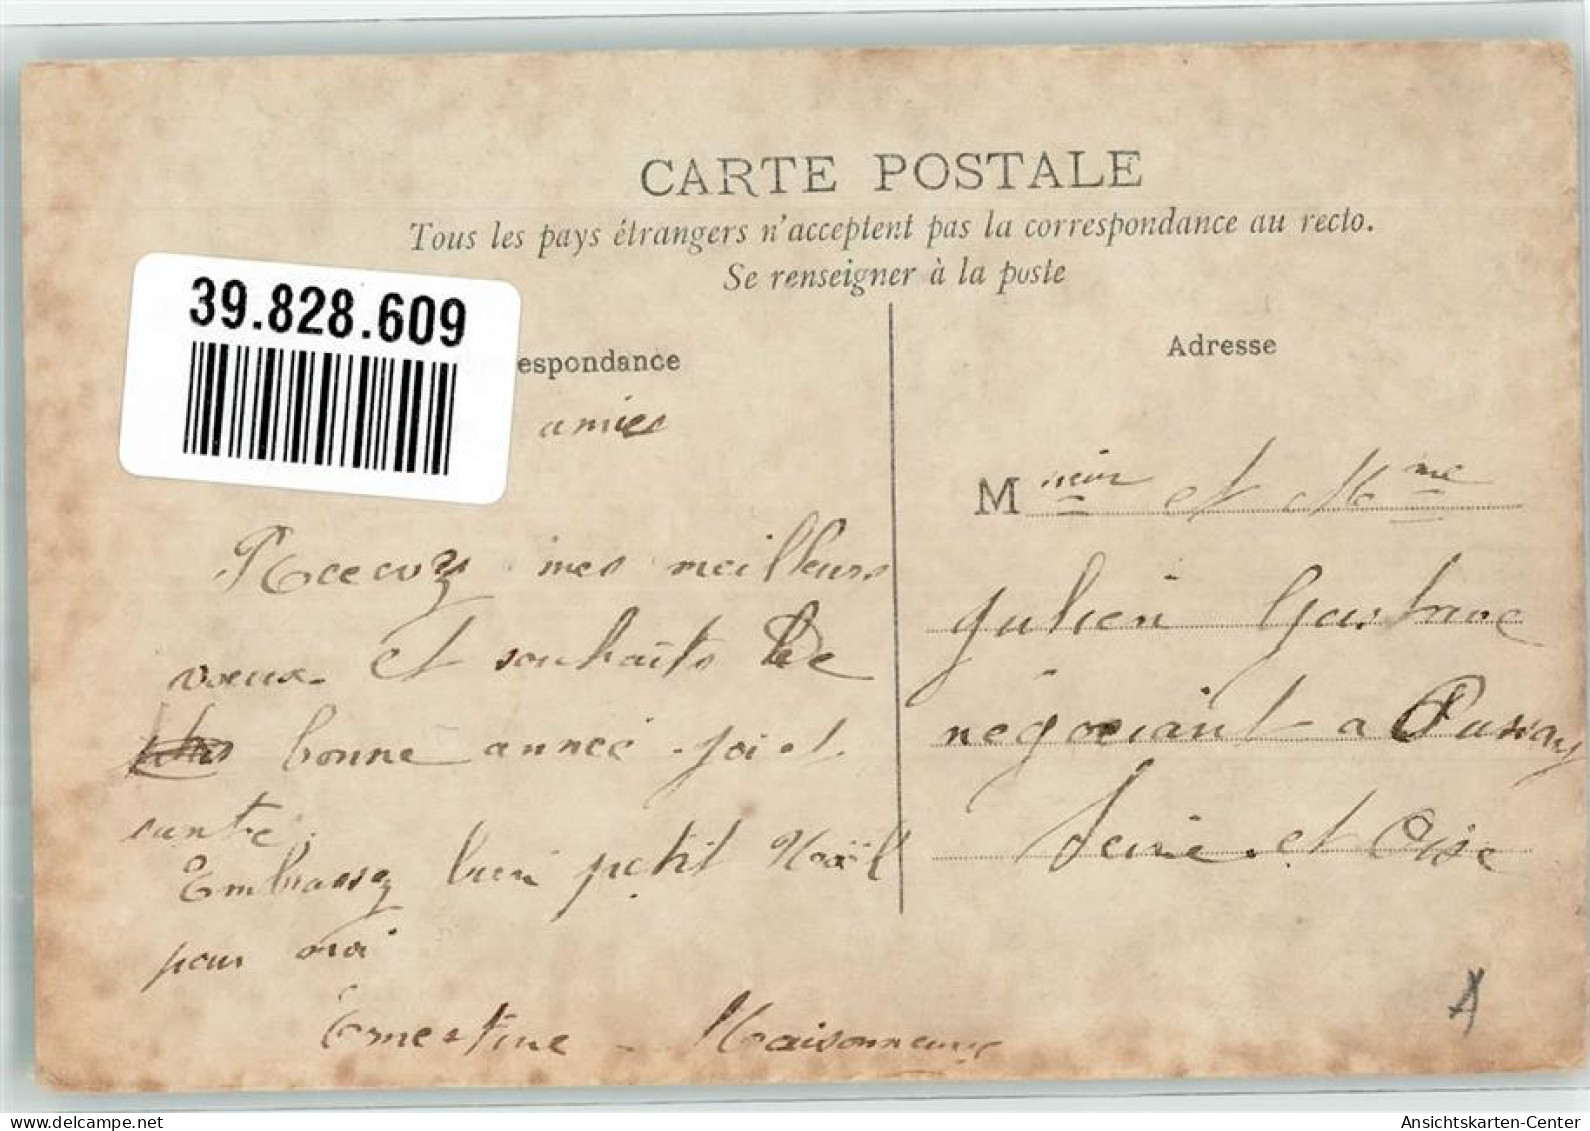 CARTE POSTALE
Tous les pays étrangers n'acceptent pas la correspondance au recto.
Se renseigner à la poste
39.828.609
espondance
amies
Recevez mes meilleurs
voeux et souhaits de
bonne année joi et
santé.
Embrassez bien petit Noël
pour moi
Ernestine Maisonneuve
Adresse
Mneur et Mme
Julien Gustave
négociant a
Seine et Oise
delcampe.net
Ansichtskarten-Center